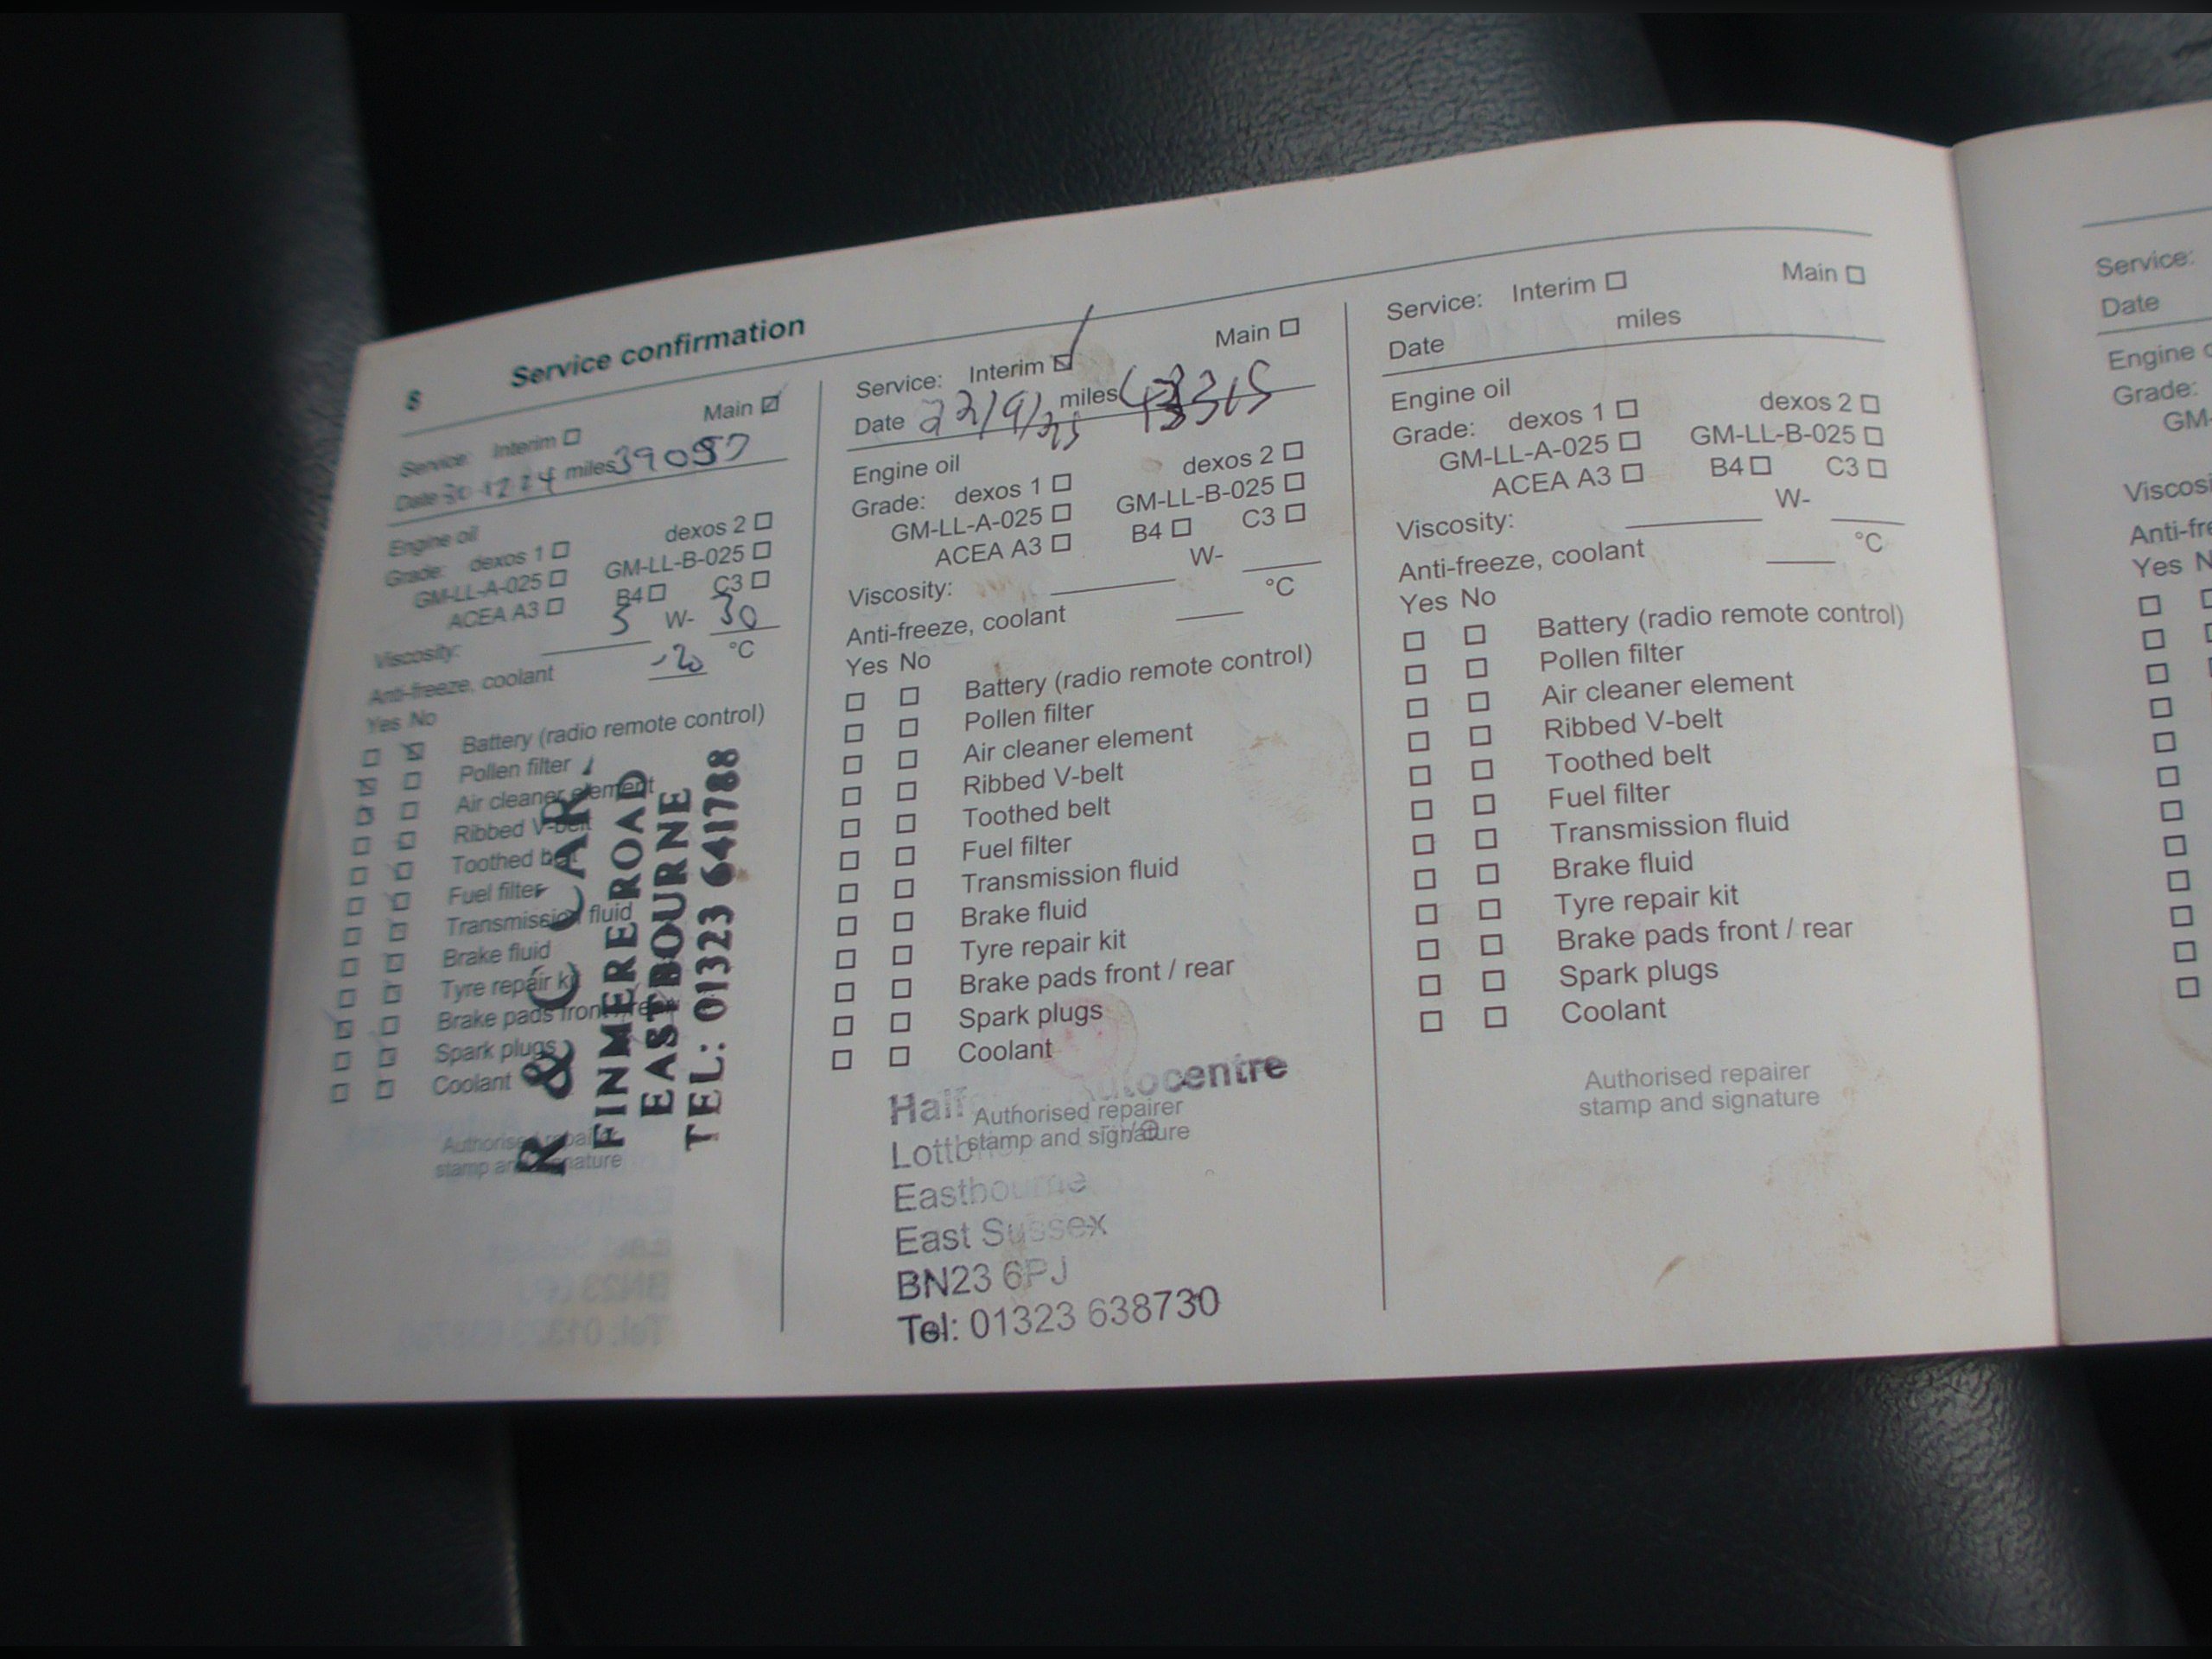 8 Service confirmation
Service: Interim Main
Date 30 12 24 miles 39087
Engine oil
Grade: dexos 1 dexos 2
GM-LL-A-025 GM-LL-B-025
ACEA A3 B4 C3
Viscosity: 5 W- 30
Anti-freeze, coolant -20 °C
Yes No
Battery (radio remote control)
Pollen filter
Air cleaner element
Ribbed V-belt
Toothed belt
Fuel filter
Transmission fluid
Brake fluid
Tyre repair kit
Brake pads front / rear
Spark plugs
Coolant
Authorised repairer
stamp and signature
R & C CAR
FINMERE ROAD
EASTBOURNE
TEL: 01323 641788
Service: Interim Main
Date 22/9/25 miles 43315
Engine oil
Grade: dexos 1 dexos 2
GM-LL-A-025 GM-LL-B-025
ACEA A3 B4 C3
Viscosity: W-
Anti-freeze, coolant °C
Yes No
Battery (radio remote control)
Pollen filter
Air cleaner element
Ribbed V-belt
Toothed belt
Fuel filter
Transmission fluid
Brake fluid
Tyre repair kit
Brake pads front / rear
Spark plugs
Coolant
Authorised repairer
stamp and signature
Autocentre
Eastbourne
East Sussex
BN23 6PJ
Tel: 01323 638730
Service: Interim Main
Date miles
Engine oil
Grade: dexos 1 dexos 2
GM-LL-A-025 GM-LL-B-025
ACEA A3 B4 C3
Viscosity: W-
Anti-freeze, coolant °C
Yes No
Battery (radio remote control)
Pollen filter
Air cleaner element
Ribbed V-belt
Toothed belt
Fuel filter
Transmission fluid
Brake fluid
Tyre repair kit
Brake pads front / rear
Spark plugs
Coolant
Authorised repairer
stamp and signature
Service:
Date
Engine
Grade:
GM-
Yes